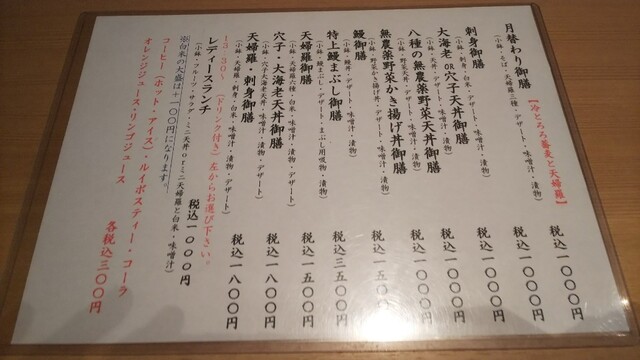 月替わり御膳 【冷とろろ蕎麦と天婦羅】 税込一〇〇〇円
(小鉢・そば・天婦羅三種・デザート・味噌汁・漬物)
刺身御膳 税込一〇〇〇円
(小鉢・刺身・白米・味噌汁・漬物・デザート)
大海老 OR 穴子天丼御膳 税込一〇〇〇円
(小鉢・天丼・味噌汁・漬物・デザート)
八種の無農薬野菜天丼御膳 税込一〇〇〇円
(小鉢・野菜天丼・デザート・味噌汁・漬物)
無農薬野菜かき揚げ丼御膳 税込一〇〇〇円
(小鉢・野菜かき揚げ丼・デザート・味噌汁・漬物)
鰻御膳 税込一五〇〇円
(小鉢・鰻丼・デザート・味噌汁・漬物)
特上鰻まぶし御膳 税込三五〇〇円
(小鉢・鰻まぶし・デザート・まぶし用吸物・漬物)
天婦羅御膳 税込一五〇〇円
(小鉢・天婦羅六種・白米・味噌汁・漬物・デザート)
穴子・大海老天丼御膳 税込一八〇〇円
(小鉢・穴子大海老天丼・味噌汁・漬物・デザート)
天婦羅・刺身御膳 税込一八〇〇円
(小鉢・天婦羅・刺身・白米・味噌汁・漬物・デザート)
13:30～ (ドリンク付き)左からお選び下さい。
レディースランチ 税込一〇〇〇円
(小鉢・フルーツ・サラダ・ミニ天丼orミニ天婦羅と白米・味噌汁)
※白米の大盛は+一〇〇円になります。
コーヒー(ホット・アイス)・ルイボスティー・コーラ
オレンジジュース・リンゴジュース 各税込三〇〇円